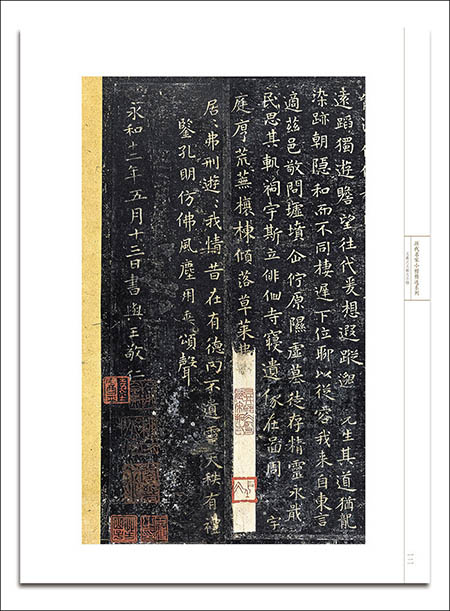 遠蹈獨遊瞻望往代爰想遐蹤邈 先生其道猶龍
染跡朝隱和而不同棲遲下位聊以從容我来自東言
適茲邑敬問墟墳企佇原隰虛墓徒存精靈永戢
民思其軌祠宇斯立徘徊寺寢遺像在圖周 宇
庭序荒蕪榱棟傾落草萊
居〻弗刑遊〻我情昔在有德罔不遺靈天秩有禮
鑒孔明仿佛風塵用垂頌聲
永和十二年五月十三日書與王敬仁
歷代名家小楷精選系列